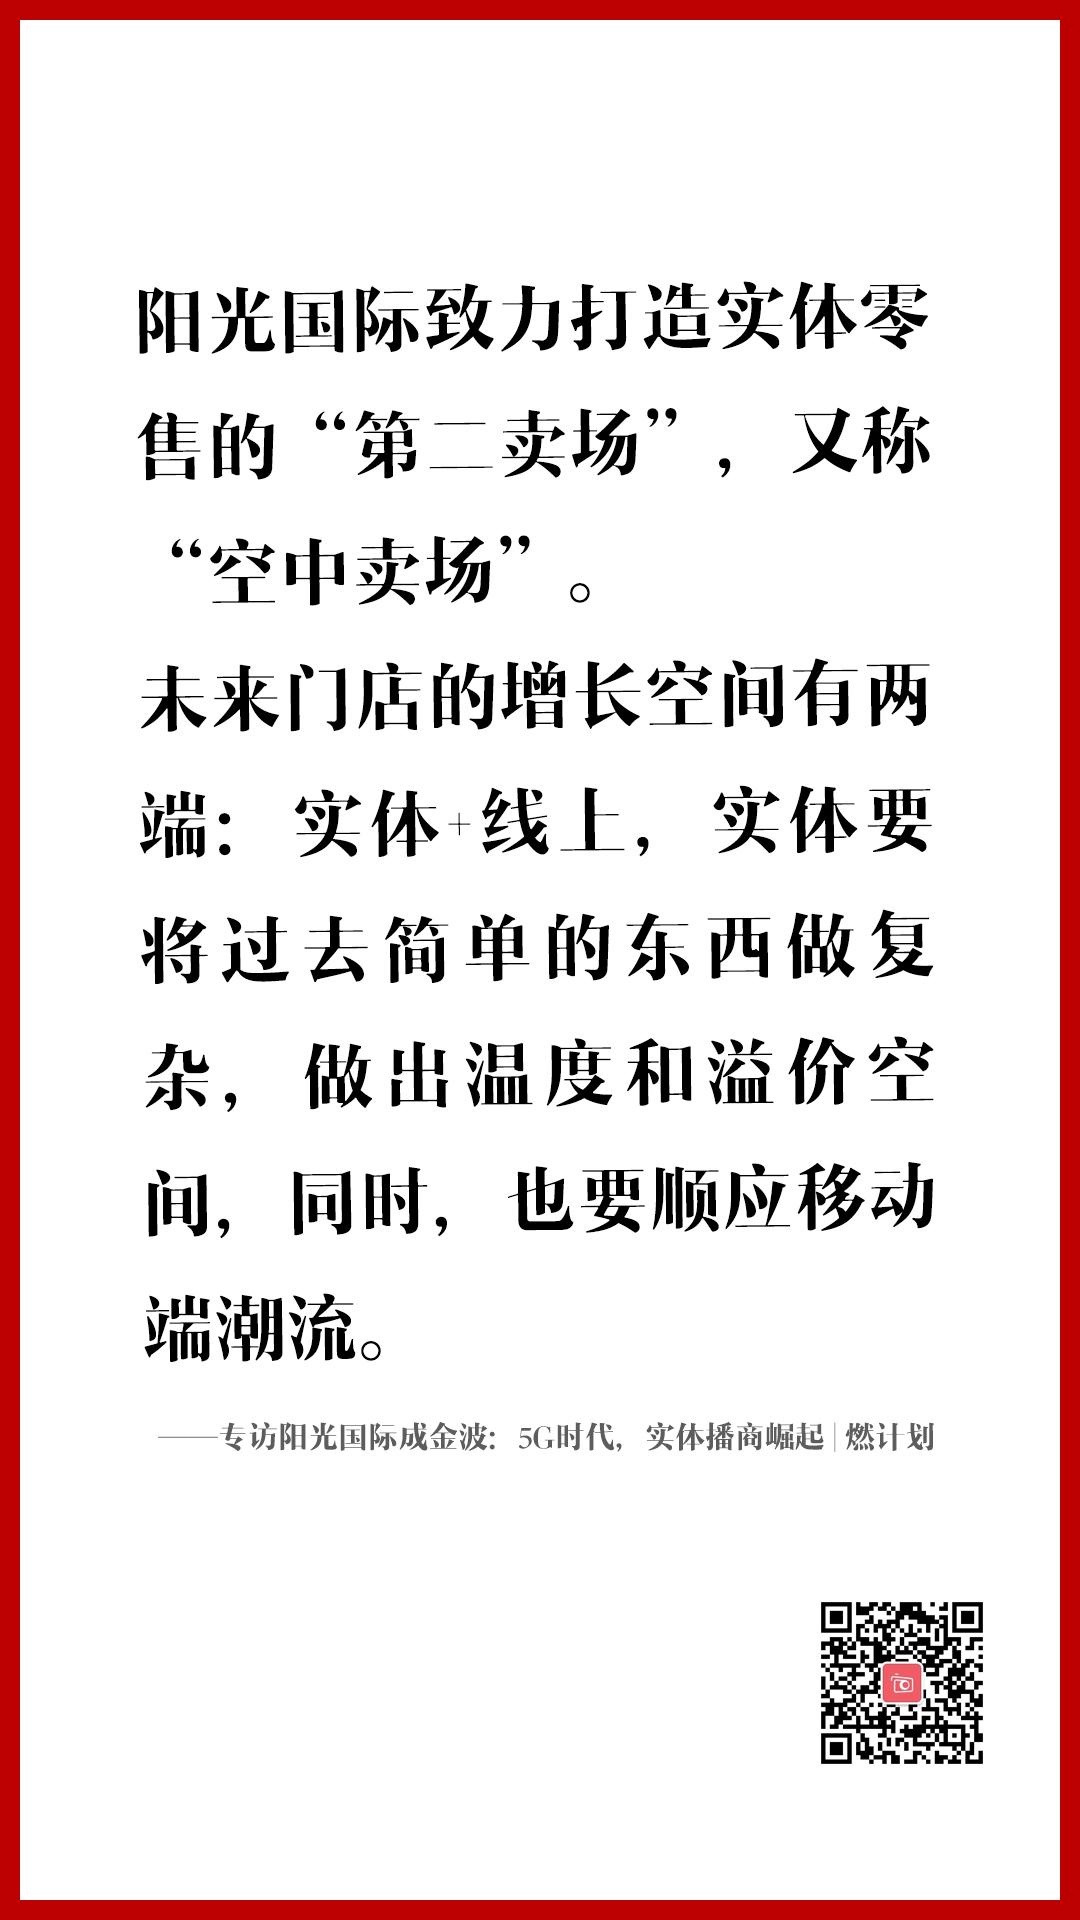 阳光国际致力打造实体零
售的“第二卖场”，又称
“空中卖场”。
未来门店的增长空间有两
端：实体+线上，实体要
将过去简单的东西做复
杂，做出温度和溢价空
间，同时，也要顺应移动
端潮流。
——专访阳光国际成金波：5G时代，实体播商崛起 | 燃计划